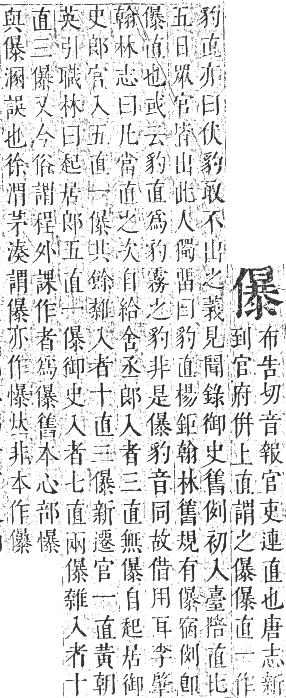 儤布告切音報官吏連直也唐志新
到官府併上直謂之儤儤直一作
豹直亦曰伏豹取不出之義見聞錄御史舊例初入臺陪直比
五日眾官皆出此人獨畱曰豹直楊鉅翰林舊規有儤宿例卽
儤直也或云豹直爲豹霧之豹非是儤豹音同故借用耳李肇
翰林志曰凡當直之次自給舍丞郎入者三直無儤自起居御
史郎官入五直一儤其餘雜入者十直三儤新遷官一直黃朝
英引職林曰起居郎五直一儤御史入者七直兩儤雜入者十
直三儤又今俗謂程外課作者爲儤舊本心部懪
與儤溷誤也徐渭茅湊謂儤亦作爆𠀤非本作㒔